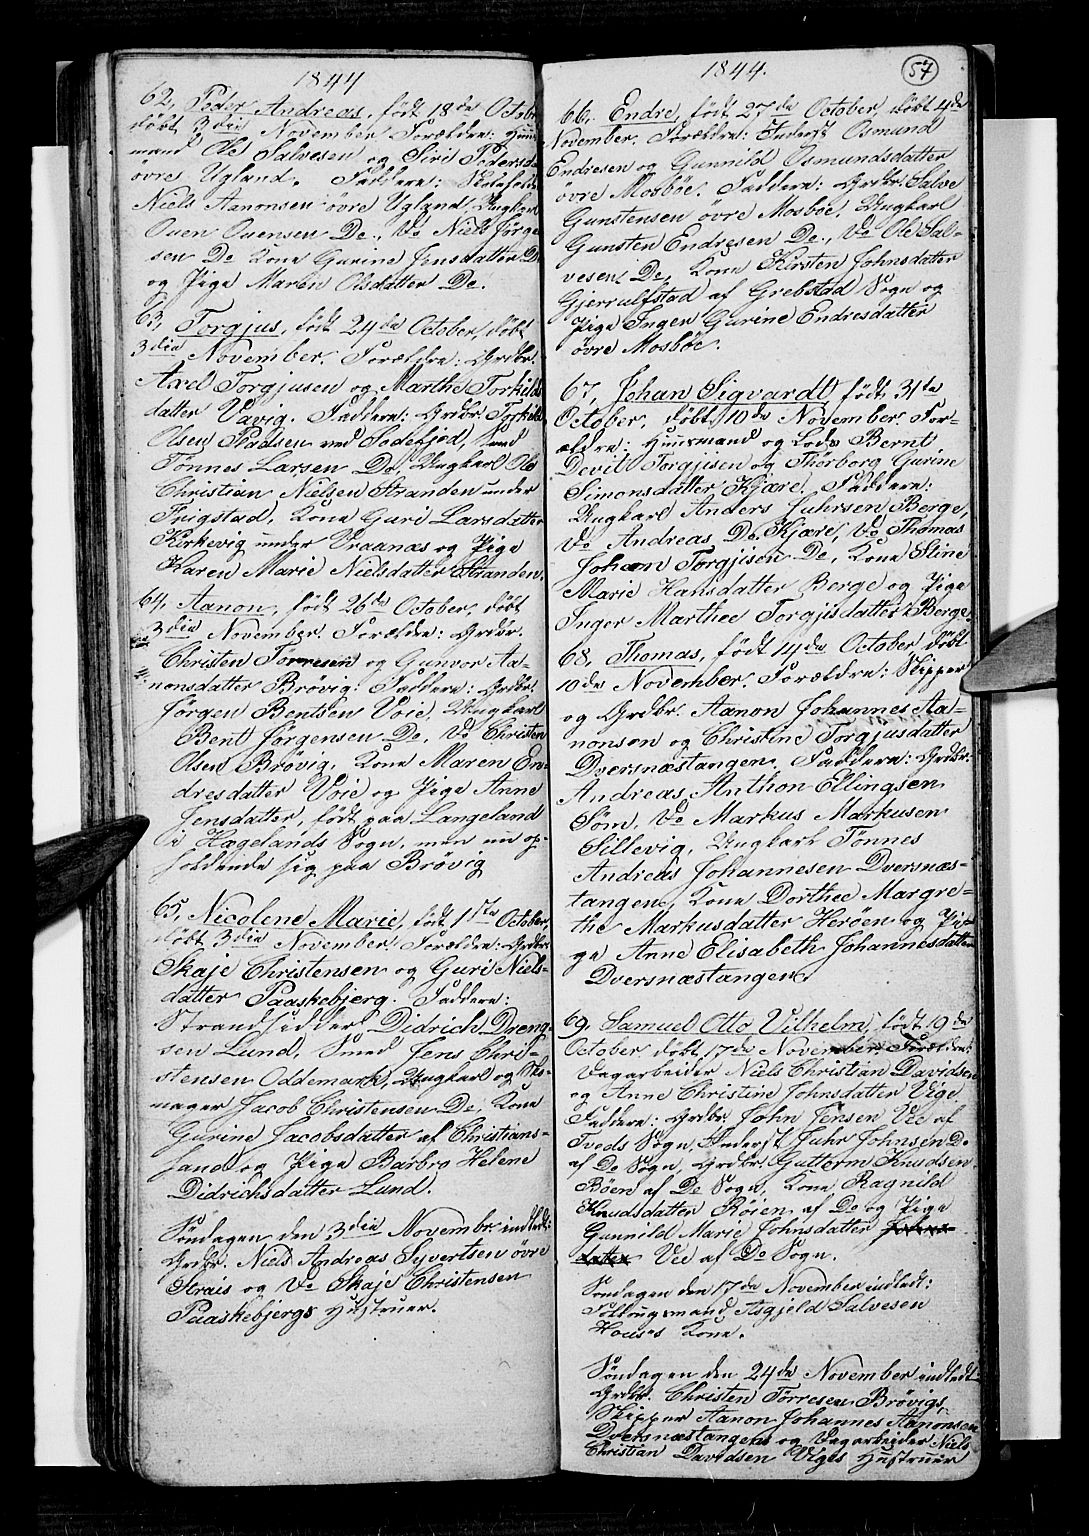 1844
62, Peder Andreas, født 18de Octobr
døbt 3die November. Forældre: Huus-
mand Ole Salvesen og Siri Pedersd.
øvre Ugland. Faddere: Skoleholder
Niels Aanonsen øvre Ugland, Ungkarl
Oven Ovensen Do, Do Niels Jørgen-
sen Do Kone Gurine Jensdatter D
og Pige Maren Olsdatter Do.
63, Torgjus, født 24de October, døbt
3die November. Forældre: Grdbr.
Axel Torgjusen og Marthe Torkilds
datter Vavig. Faddere: Grdbr. Torkild
Olsen ved
Tønnes Larsen Do, Ungkarl Ole
Christian Nielsen Stranden under
Frigstad, Kone Guri Larsdatter
Kirkevig under Vraanæs og Pige
Karen Marie Nielsdatter Stranden.
64, Aanon, født 26de October, døbt
3die November. Forældre: Grdbr.
Christen Torresen og Gunvor Aa-
nonsdatter Brøvig. Faddere: Grdbr.
Jørgen Bentsen Voie, Ungkarl
Bent Jørgensen Do, Do Christen
Olsen Brøvig, Kone Maren En-
dresdatter Voie og Pige Anne
Jensdatter, født paa Langeland
i Hægelands Sogn, men nu op-
holdende sig paa Brøvig
65, Nicolene Marie, født 1ste October,
døbt 3die November. Forældre: Grdbr.
Skaje Christensen og Guri Niels-
datter Paaskebjerg. Faddere:
Strandsidder Didrich Dreng-
sen Lund, Smed Jens Chri-
stensen Oddemark, Ungkarl og Sko-
mager Jacob Christensen Do, Kone
Gurine Jacobsdatter af Christians-
sand og Pige Barbro Helene
Didrichsdatter Lund.
Søndagen den 3die Novembr indledt:
Grdbr. Niels Andreas Syvertsen øvre
Strais og Do Skaje Christensen
Paaskebjergs Hustruer.
1844.
57
66, Endre, født 27de October, døbt 4de
November. Forældre: Inderst Osmund
Endresen og Gunnild Osmundsdatter
øvre Mosbøe. Faddere: Grdbr. Salve
Gunstensen øvre Mosbøe, Ungkarl
Gunsten Endresen Do, Do Ole Sal-
vesen Do, Kone Kirsten Johnsdatter
Gjerrulfstad af Grebstad Sogn og
Pige Inger Gurine Endresdatter
øvre Mosbøe.
67, Johan Sigvardt, født 31te
October, døbt 10de November. For-
ældre: Huusmand og Lods Bernt
Devil Torgjisen og Thorborg Gurine
Simonsdatter Kjære. Faddere:
Ungkarl Anders Juhrsen Berge,
Do Andreas Do Kjære, Do Thomas
Johan Torgjisen Do, Kone Stine
Marie Hansdatter Berge og Pige
Inger Marthee Torgjisdatter Berge.
68, Thomas, født 14de October, døbt
10de November. Forældre: Skipper
og Grdbr. Aanon Johannes Aa-
nonsen og Christine Torgjusdatter
Dversnæstangen. Faddere: Grdbr.
Andreas Anthon Ellingsen
Søm, Do Markus Markusen
Sillevig, Ungkarl Tønnes
Andreas Johannesen Dversnæs-
tangen, Kone Dorthee Margre-
the Markusdatter Herøen og Pi-
ge Anne Elisabeth Johannesdatter
Dversnæstangen.
69, Samuel Otto Vilhelm, født 19de
October døbt 17de November. Forældre:
Vegarbeider Niels Christian Davidsen
og Anne Christine Johnsdatter Vige.
Faddere: Grdbr. John Jensen Vee af
Tveds Sogn, Inderst Juhr Johnsen Do
af Do Sogn, Grdbr. Gutterm Knudsen
Bøen af Do Sogn, Kone Ragnild
Knudsdatter Røien af Do og Pige
Gunnild Marie Johnsdatter
Vee af Do Sogn.
Søndagen den 17de November indledt:
Asgjeld Salvesen
Kone.
Søndagen den 24de November indledt
Grdbr. Christen Torresen Brøvigs,
Skipper Aanon Johannes Aanonsen
Dversnæstangens og Vegarbeider Niels
Christian Davidsen Viges Hustruer